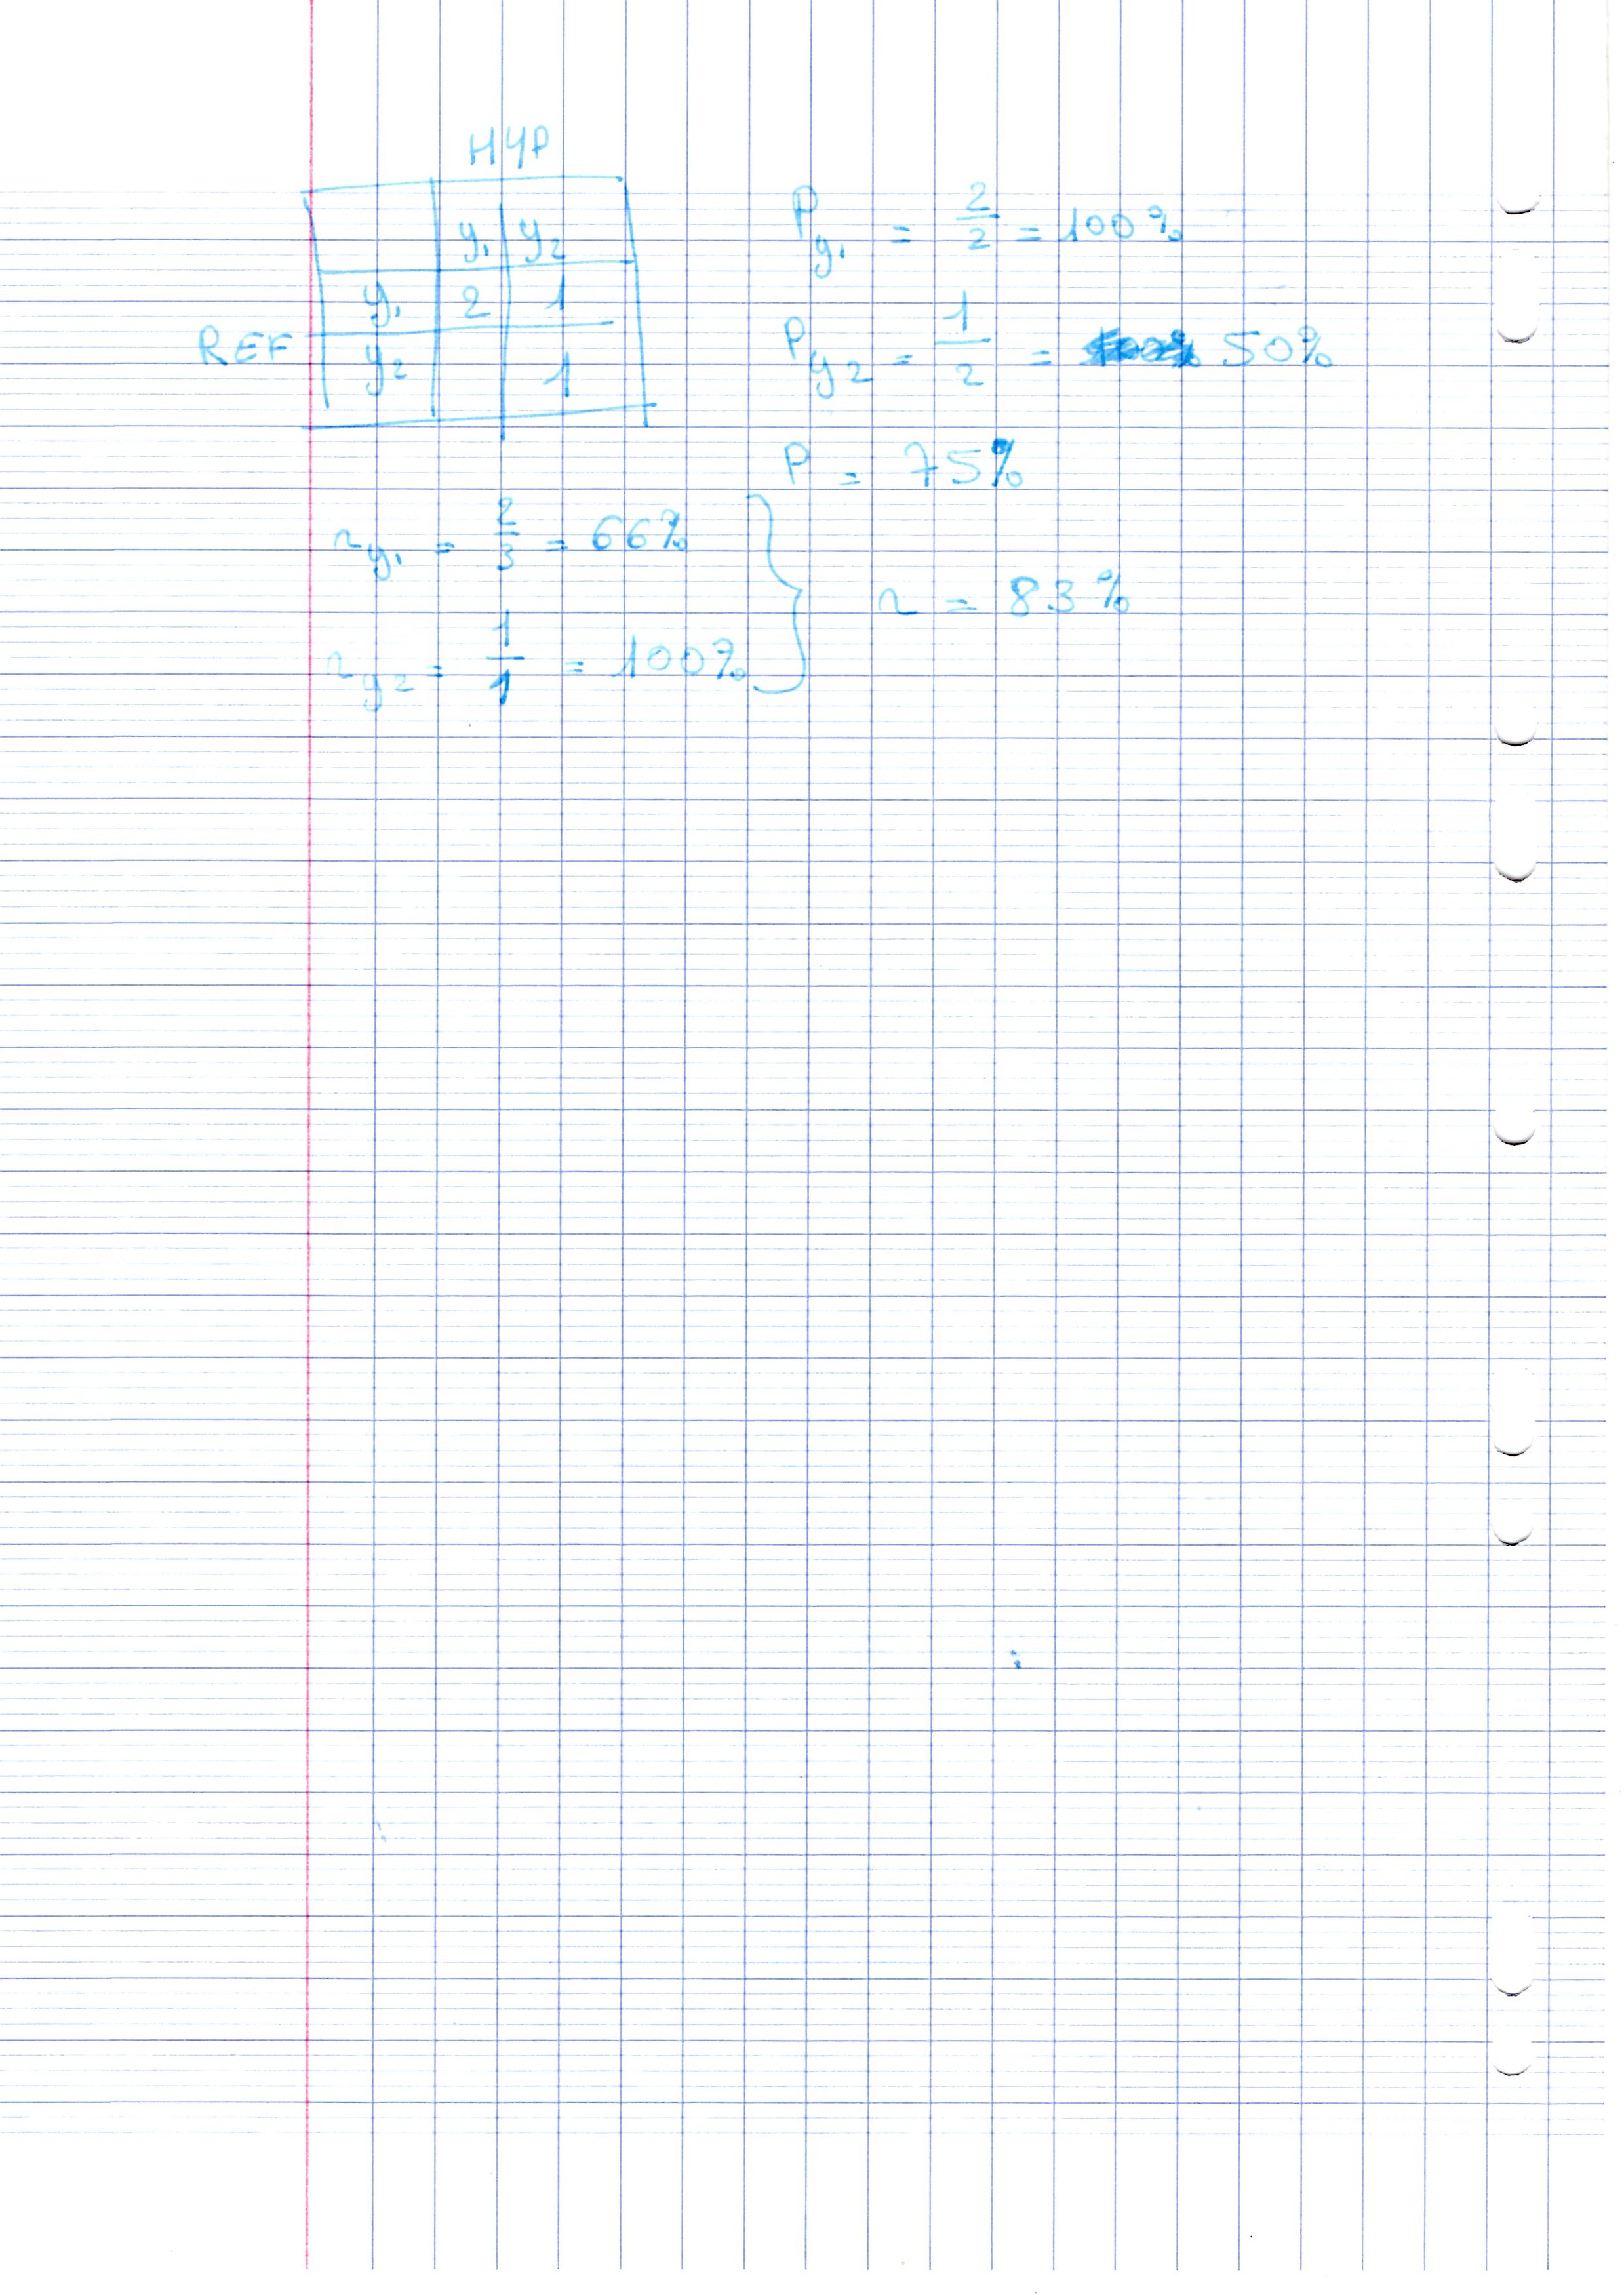 HYP
y₁ y₂
y₁ 2 1
REF
y₂ 1
P y₁ = 2/2 = 100%
P y₂ = 1/2 = 50%
P = 75%
r y₁ = 2/3 = 66%
r y₂ = 1/1 = 100%
r = 83%